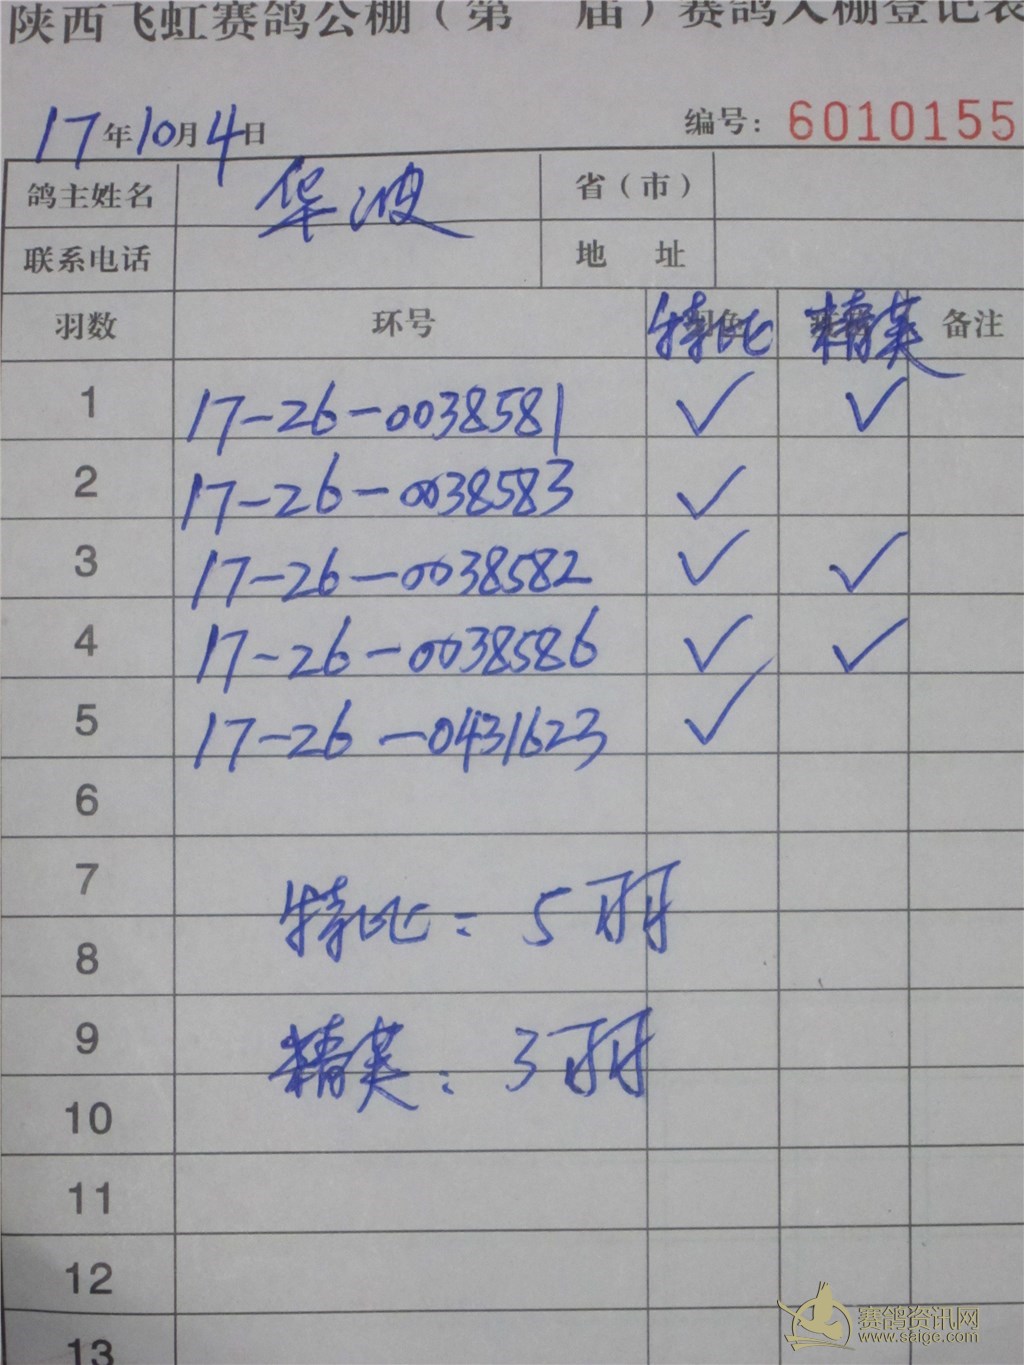 陕西飞虹赛鸽公棚（第 届）赛鸽入棚登记表
17年10月4日 编号：6010155
鸽主姓名 华波 省（市）
联系电话 地 址
羽数 环号 特比 精英 备注
1 17-26-0038581 ✓ ✓
2 17-26-0038583 ✓
3 17-26-0038582 ✓ ✓
4 17-26-0038586 ✓ ✓
5 17-26-0431623 ✓
6
7
特比：5羽
8
9
精英：3羽
10
11
12
13
赛鸽资讯网
www.saige.com